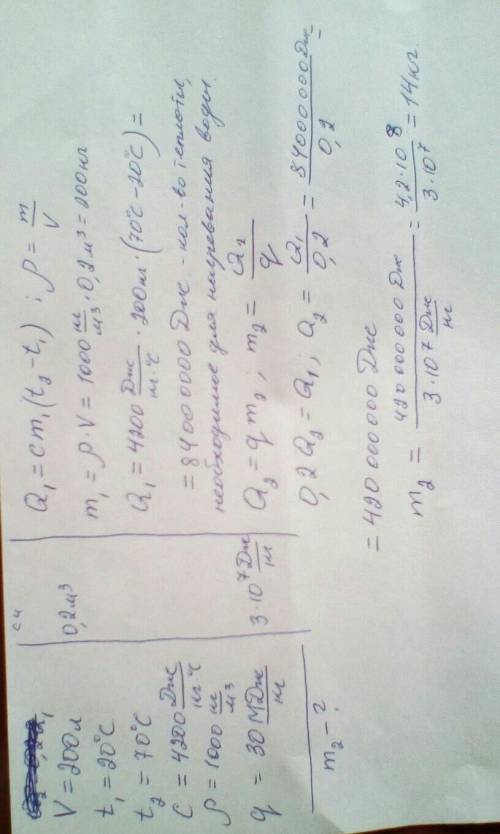 V = 200л
t₁ = 20°C
t₂ = 70°C
C = 4200 Дж/кг·°C
ρ = 1000 кг/м³
q = 30 МДж/кг
m₂ - ?
си
0,2 м³
3·10⁷ Дж/кг
Q₁ = cm₁(t₂ - t₁) ; ρ = m/V
m₁ = ρ·V = 1000 кг/м³ · 0,2 м³ = 200 кг
Q₁ = 4200 Дж/кг·°C · 200 кг · (70°C - 20°C) =
= 84000000 Дж - кол-во теплоты,
необходимое для нагревания воды.
Q₂ = q m₂ , m₂ = Q₂/q
0,2 Q₂ = Q₁ , Q₂ = Q₁/0,2 = 84000000 Дж/0,2 =
= 420 000 000 Дж
m₂ = 420 000 000 Дж / 3·10⁷ Дж/кг = 4,2·10⁸ / 3·10⁷ = 14 кг.